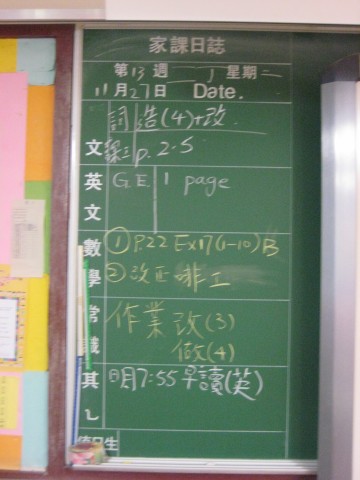 家課日誌
第13週 星期二
11月27日 Date.
詞造(4)+改
文 p. 2-5
英文 GE 1 page
數學 ① P.22 Ex17(1-10)B
② 改正
常識 作業改(3)
做(4)
其 7:55早讀(英)
值日生